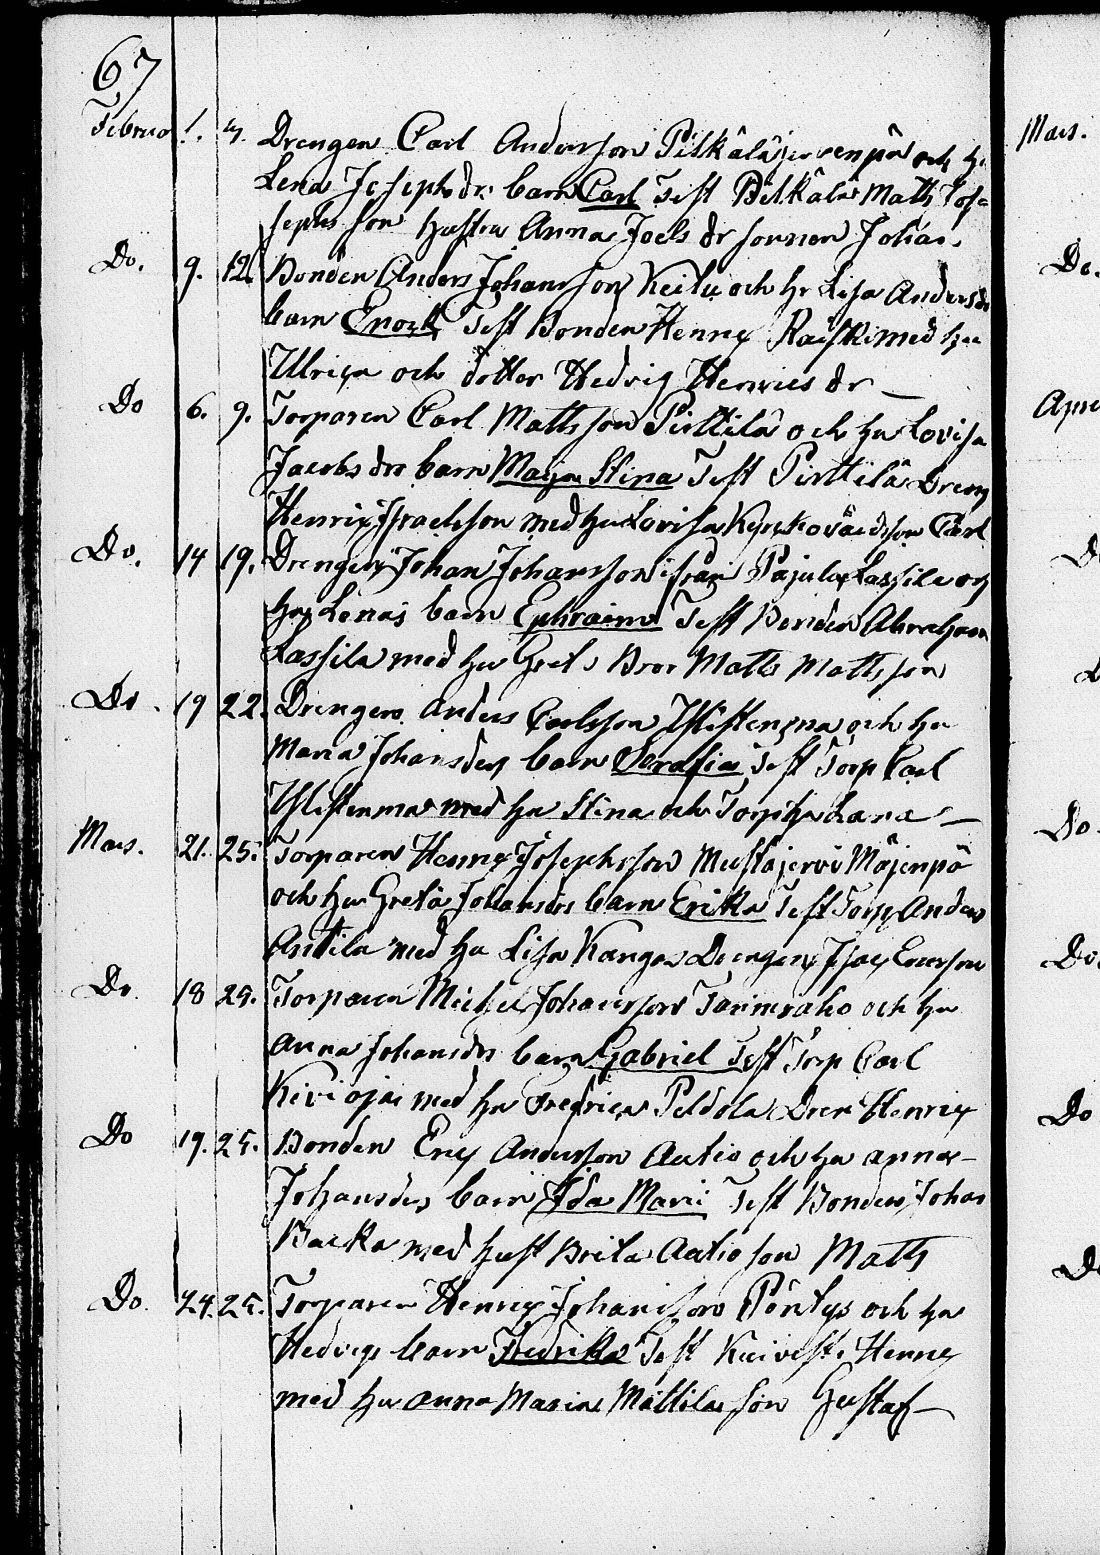 67
Februa 1. 4. Drengen Carl Andersson Pitkäläjervenpä och h:
Lena Josephsdr: barn Carl Test Pitkälä Matts Jo
sephsson hustru Anna Joels dr sonnen Johan
Do. 9. 12. Bonden Anders Johansson Keitu och hr Lisa Andersdr
barn Enock Test Bonden Henric Raiski med hu
Ulrica och dotter Hedvig Henrics dr
Do 6. 9. Torparen Carl Mattsson Pirttilä och hu Lovisa
Jacobs dr barn Maja Stina Test Pirttilä Dreng
Henric Isracksson med hu Lovisa Carl
Do. 14 19. Drengen Johan Johansson ifrån Pajula Lassila och
hu Lenas barn Ephraim Test Bonden Abraham
Lassila med hu Greta Bror Matts Mattsson
Do. 19 22. Drengen Anders Carlsson och hu
Maria Johansdr barn Serafia Test Torp Carl
med hu Stina och Torp hu Lena
Mars. 21. 25. Torparen Henric Josephsson Mustajervi Mäjenpä
och hu Greta Johansdrs barn Erika Test Torp Anders
Antila med hu Lisa Kangas Drengen Isac Ericsson
Do. 18 25. Torparen Michel Johansson och hu
Anna Johansdrs barn Gabriel Test Torp Carl
Kivioja med hu Fredrica Peldola Dren Henric
Do 19. 25. Bonden Eric Andersson Autio och hu Anna
Johansdrs barn Ida Maria Test Bonden Johan
Backa med hust Brita Autio son Matts
Do. 24. 25. Torparen Henric Johansson Pöntys och hu
Hedvigs barn Fredrika Test Kuivisto Henric
med hu Anna Maria Mattila son Gustaf
Mars.
Do.
Apri
Do
Do.
Do.
Do